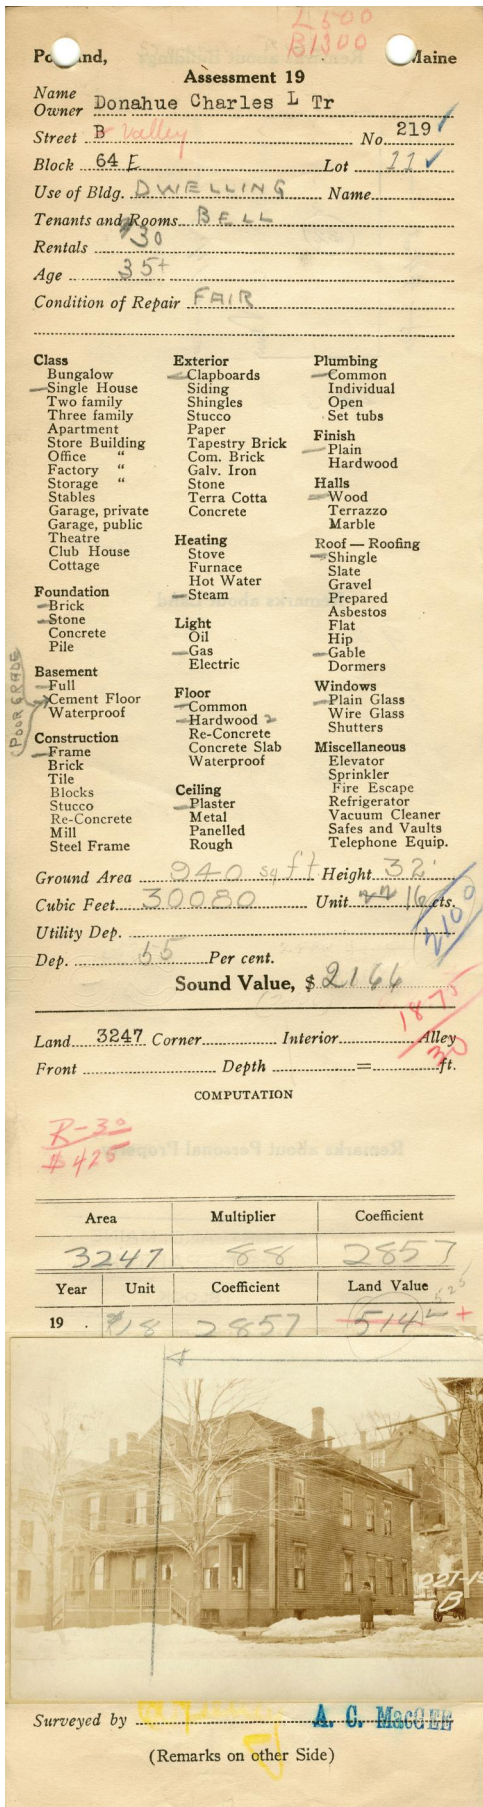 L500
B1300
Portland, Maine
Assessment 19
Name
Owner Donahue Charles L Tr
Street B Valley No. 219
Block 64 E Lot 11
Use of Bldg. DWELLING Name
Tenants and Rooms BELL
Rentals $30
Age 35+
Condition of Repair FAIR
Class
Bungalow
Single House
Two family
Three family
Apartment
Store Building
Office "
Factory "
Storage "
Stables
Garage, private
Garage, public
Theatre
Club House
Cottage
Foundation
Brick
Stone
Concrete
Pile
Basement
Full
Cement Floor
Waterproof
POOR GRADE
Construction
Frame
Brick
Tile
Blocks
Stucco
Re-Concrete
Mill
Steel Frame
Exterior
Clapboards
Siding
Shingles
Stucco
Paper
Tapestry Brick
Com. Brick
Galv. Iron
Stone
Terra Cotta
Concrete
Heating
Stove
Furnace
Hot Water
Steam
Light
Oil
Gas
Electric
Floor
Common
Hardwood 2
Re-Concrete
Concrete Slab
Waterproof
Ceiling
Plaster
Metal
Panelled
Rough
Plumbing
Common
Individual
Open
Set tubs
Finish
Plain
Hardwood
Halls
Wood
Terrazzo
Marble
Roof — Roofing
Shingle
Slate
Gravel
Prepared
Asbestos
Flat
Hip
Gable
Dormers
Windows
Plain Glass
Wire Glass
Shutters
Miscellaneous
Elevator
Sprinkler
Fire Escape
Refrigerator
Vacuum Cleaner
Safes and Vaults
Telephone Equip.
Ground Area 940 sq ft Height 32'
Cubic Feet 30080 Unit 16 cts.
2100
Utility Dep.
Dep. 55 Per cent.
Sound Value, $ 2166
1875
30
Land 3247 Corner Interior Alley
Front Depth = ft.
COMPUTATION
R-30
$425
Area Multiplier Coefficient
3247 88 2857
Year Unit Coefficient Land Value
525
19 . $18 2857 514 +
221-19
B
Surveyed by A. C. MacGEE
(Remarks on other Side)